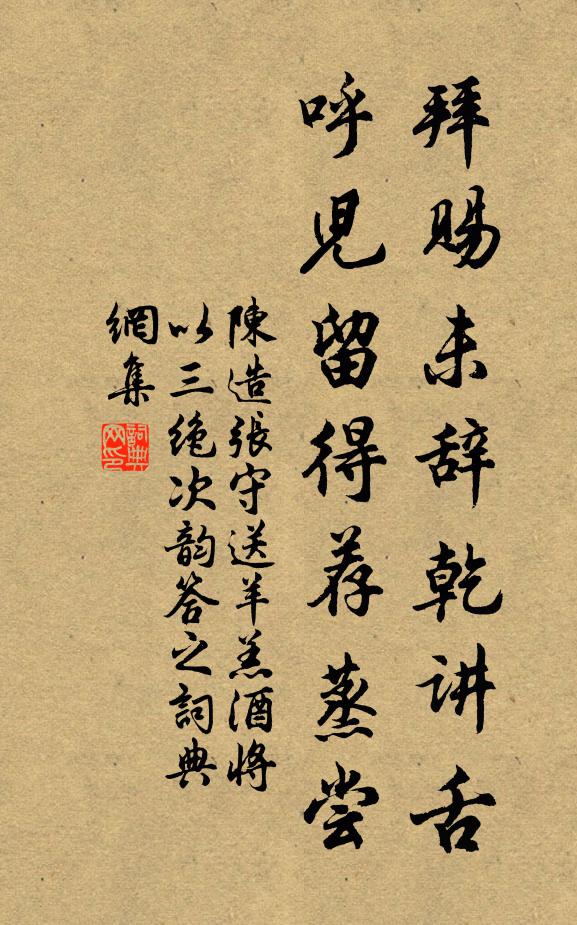 拜賜未辞乾讲舌
呼児留得荐蒸尝
陳造張守送羊羔酒將
以三绝次韵答之詞典
網集
詞典
网印